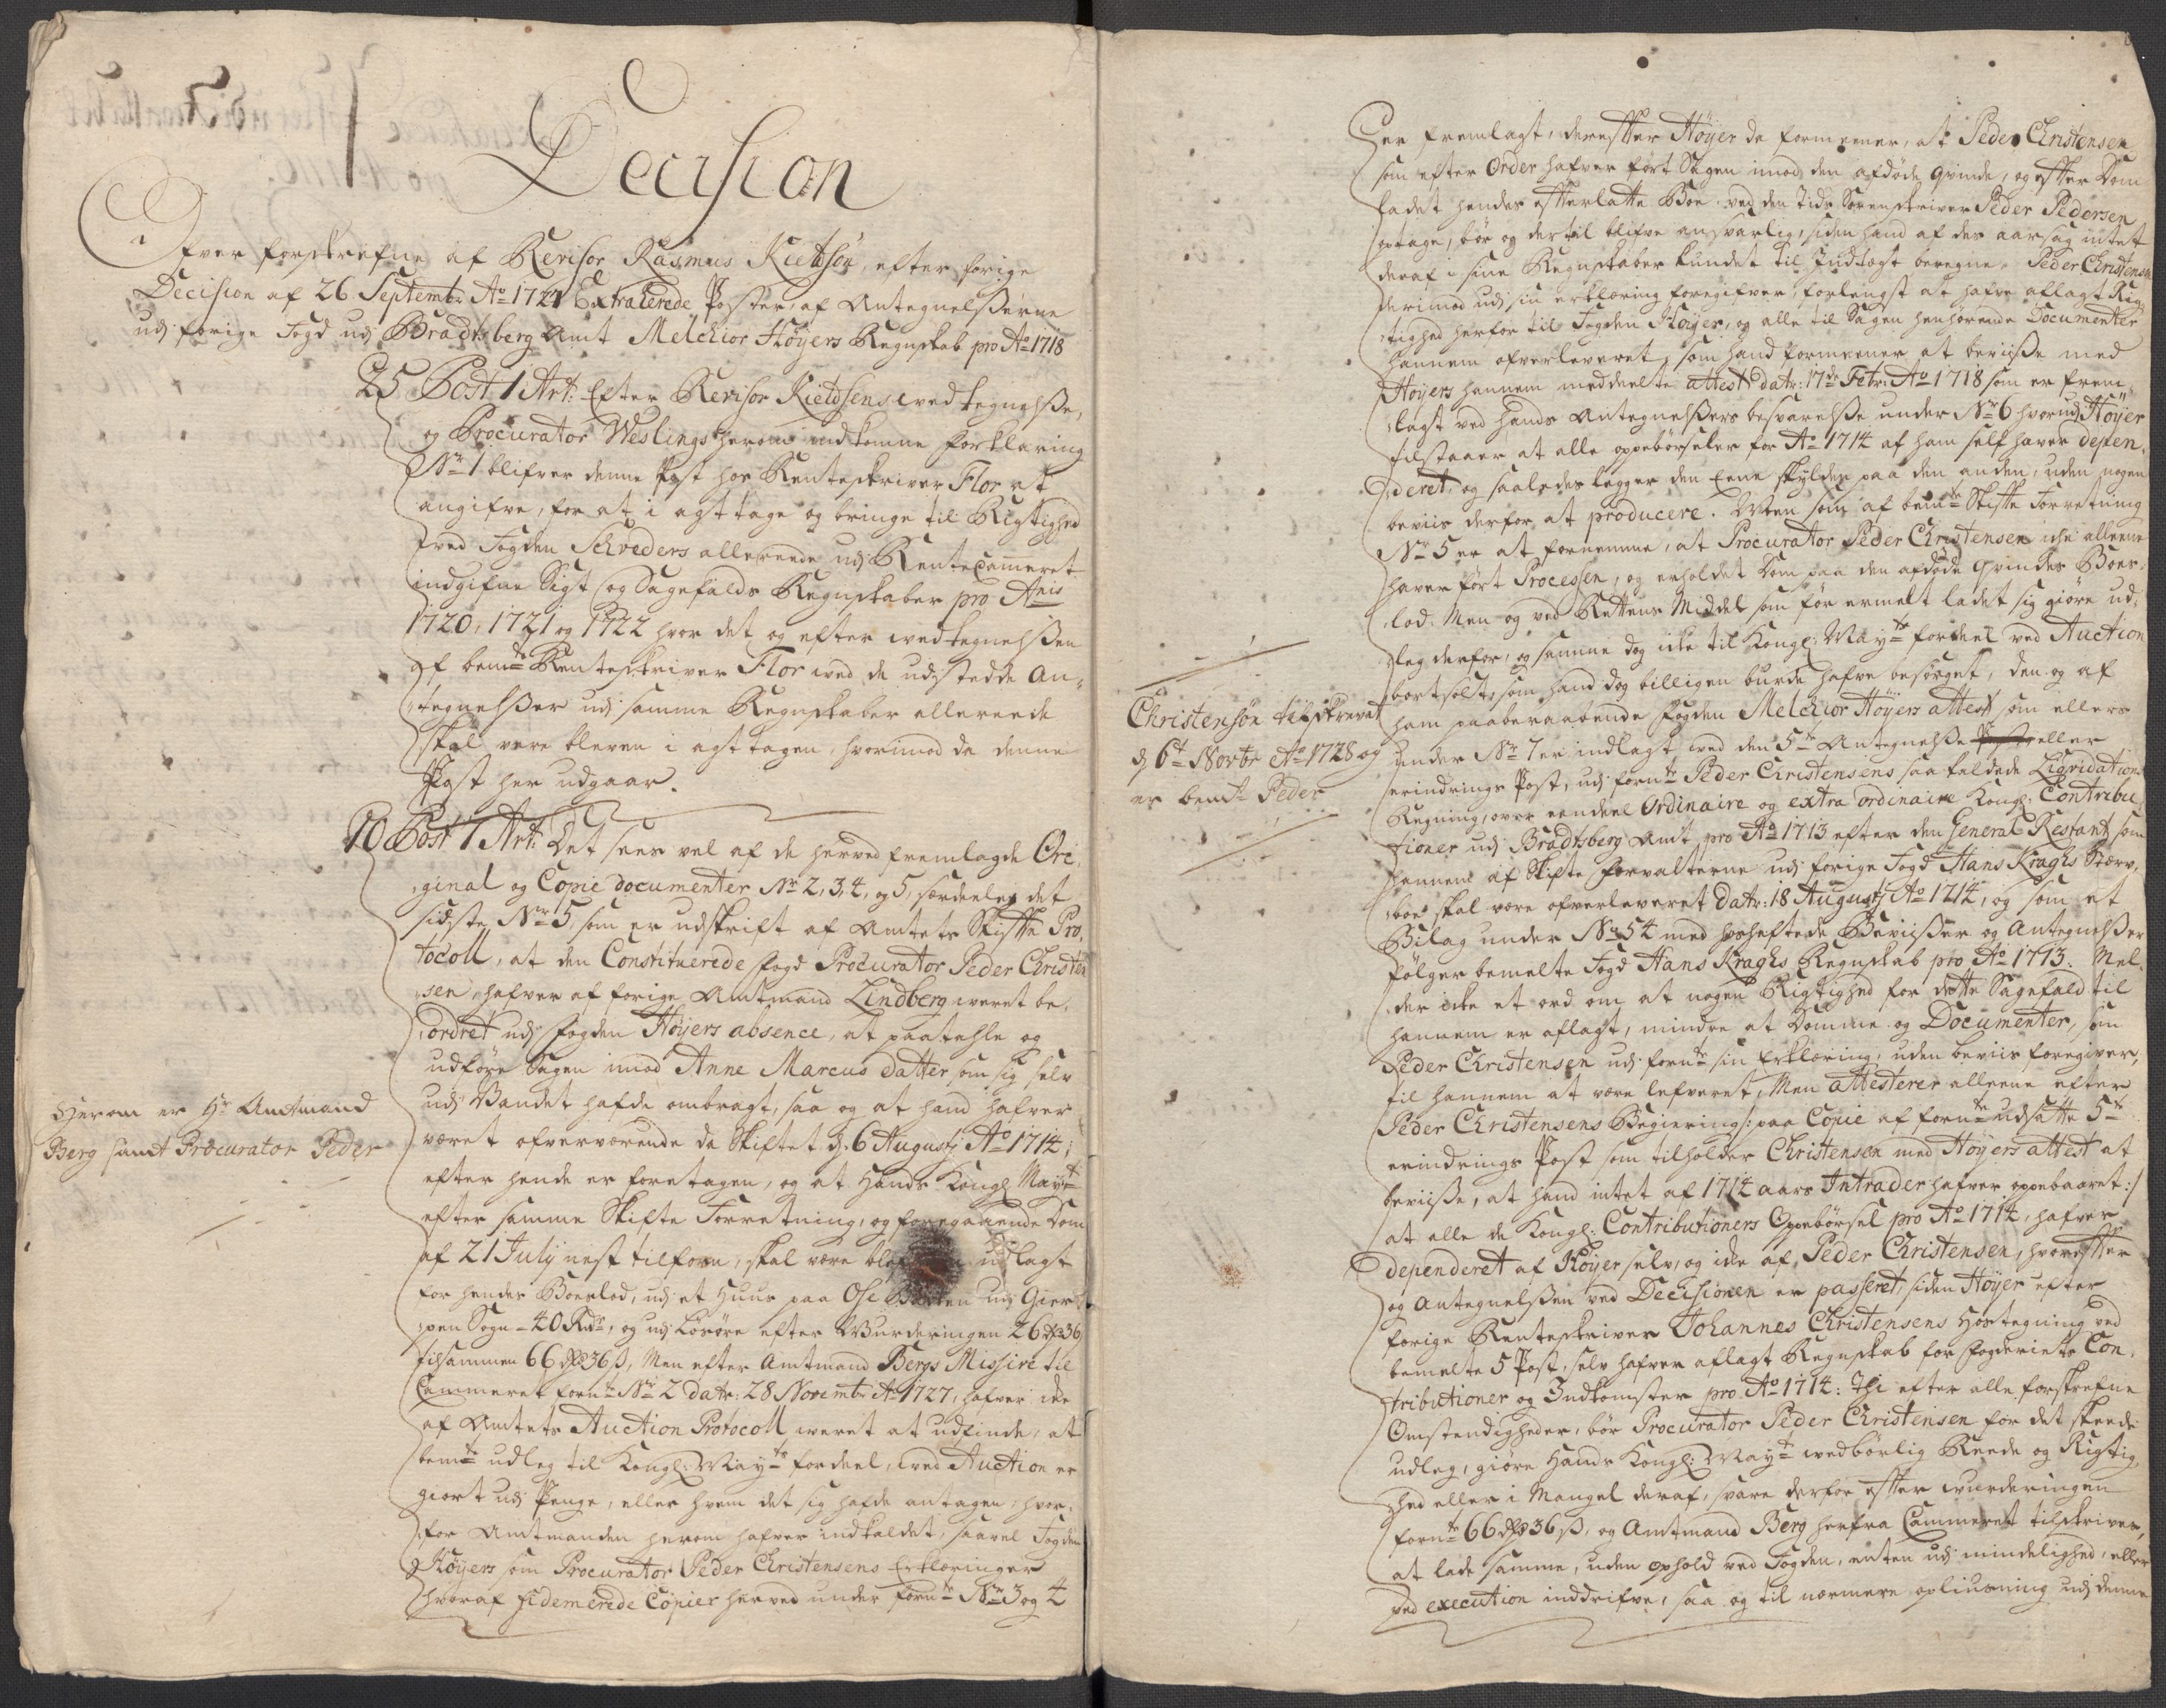 Decision
Ofver forskrefne af Revisor Rasmus Kieldsøn, efter forige
Decision af 26 Septembr Ao 1727 Extraherede Poster af Antegnelsserne
udj forige Fogd udj Bradtsberg Amt Melchior Höyers Regnskab pro Ao 1718
25 Post 1 Art: Efter Revisor Kieldsens vedtegnelsse,
og Procurator Weslings herom indkomne forklaring
No 1 blifver denne Post hos Renteskriver Flor at
angifve, for at i agt tage og bringe til Rigtighed
ved Fogden Schveders allerende udj Rentecameret
indgifne Sigt og Sagefalds Regnskaber pro Anis
1720, 1721 og 1722 hvor det og efter vedtegnelssen
af bemte Renteskriver Flor ved de udstedde An-
tegnelsser udj samme Regnskaber allereede
skal vere bleven i agt tagen, hvorimod da denne
Post her udgaar.
10 Post 1 Art: Det sees vel af de herved fremlagde Ori-
ginal og Copie documenter No 2, 3, 4, og 5, særdeeles det
sidste No 5, som er udskrift af Amtets Skifte Pro-
tocoll, at den Constituerede fogd Procurator Peder Christen
sen, hafver af forige Amtmand Lindberg weret be-
ordret udj fogden Höyers absence, at paatahle og
udföre Sagen imod Anne Marcus datter som sig selv
udj Vandet hafde ombragt, saa og at hand hafver
været ofverværende da Skiftet d: 6 Augustj Ao 1714,
Herom er Hr Amtmand
Berg samt Procurator Peder
efter hende er foretagen, og at Hands Kongl Mayt
efter samme Skifte Forretning, og foregaaende Dom
af 21 July nest tilforn, skal være udlagt
for hendes Boeslod, udj et Huus paa Ose udj Gier-
pen Sogn - 40 Rdr, og udj Løsøre efter Wurderingen 26 Rdr 36
tilsammen 66 Rdr 36 ß, Men efter Amtmand Bergs Missive til
Cammeret fornte No 2 datr: 28 Novembr Ao 1727, hafver icke
af Amtets Auction Protocoll weret at udfinde, at
bemte udleg til Kongl: Mayts fordeel, ved Auction er
giort udj Penge, eller hvem det sig hafde antagen, hvor-
for Amtmanden herom hafver indkaldet, saavel Fogden
Höyers som Procurator Peder Christensens Erklæringer
hvoraf fidemerede Copier herved under fornte No 3 og 4
er fremlagt, derefter Höyer da formeener, at Peder Christensen
som efter Order hafver ført Sagen imod den afdøde qvinde, og efter Dom
ladet hendes efterlatte Boe ved den Tids Sorenskriver Peder Pedersen
optage, bör og dertil blifve ansvarlig, siden hand af den aarsag intet
deraf i sine Regnskaber kundet til Indtegt beregne. Peder Christensen
derimod udj sin erklæring foregifver, forlengst at hafve aflagt Rig-
tighed herfor til Fogden Höyer, og alle til Sagen henhörende Documenter
hannem ofverleveret, som hand formeener at beviisse med
Höyers hannem meddeelte attest datr: 17de Febr: Ao 1718 som er frem-
lagt ved hands Antegnelssers besvarelsse under No 6 hvorudj Höyer
tilstaaer at alle oppebörseler for Ao 1714 af ham self haver depen-
deret, og saaledes legger den Eene skylden paa den anden, uden nogen
beviis derfor at producere. Men som af bemte Skifte Forretning
No 5 er at fornemme, at Procurator Peder Christensen iche alleene
haver ført Processen, og erholdet Dom paa den afdøde qvindes Boes-
lod. Men og ved Rettens Middel som før ermelt ladet sig giöre ud-
leg derfor, og samme dog icke til Kongl: Mayts fordeel ved Auction
bortsolt, som hand dog billigen burde hafve besørget, den og af
Christensøn tilskrevet
d: 6t Novbr Ao 1728 og
er bemte Peder
ham paaberaabende fogden Melchior Höyers attest, som ellers
under No 7 er indlagt ved den 5te Antegnelsse eller
erindrings Post, udj fornte Peder Christensens saa kaldede Liqvidations
Regning, over eendeel Ordinaire og extra ordinaire Kongl: Contribu-
tioner udj Bradtsberg Amt pro Ao 1713 efter den General Restantz som
hannem af Skifte forvalterne udj forige Fogd Hans Kraghs Stærv-
boe skal være ofverleveret datr: 18 Augustj Ao 1714, og som et
Bilag under No 54 med hosheftede Beviisser og Antegnelsser
følger bemelte Fogd Hans Kraghs Regnskab pro Ao 1713. Mel-
der icke et ord om at nogen Rigtighed for dette Sagefald til
hannem er aflagt, mindre at Domme og Documenter, som
Peder Christensen udj fornte sin Erklæring, uden beviis foregiver,
til hannem at være lefveret, Men attesterer alleene efter
Peder Christensens Begiering /: paa Copie af fornte udsatte 5te
erindrings Post som tilholder Christensen med Höyers attest at
beviisse, at hand intet af 1714 aars Intrader hafver oppebaaret :/
at alle de Kongl: Contributioners Oppebørsel pro Ao 1714, hafver
dependeret af Höyer selv, og icke af Peder Christensen, hvorefter
og Antegnelssen ved Decisionen er passeret, siden Höyer efter
forige Renteskriver Johannes Christensens Hostegning ved
bemelte 5 Post, selv hafver aflagt Regnskab for fogderiets Con-
tributioner og Indkomster pro Ao 1714: Thi efter alle forskrefne
Omstendigheder, bör Procurator Peder Christensen for det skeede
udleg, giöre Hands Kongl: Mayt vedbörlig Reede og Rigtig-
hed eller i Mangel deraf, svare derfor efter wurderingen
fornte 66 Rdr 36 ß, og Amtmand Berg herfra Cammeret tilskrives,
at lade samme, uden ophold ved Fogden, enten udj mindelighed, eller
ved execution inddrifve, saa og til nærmere opliusning udj denne